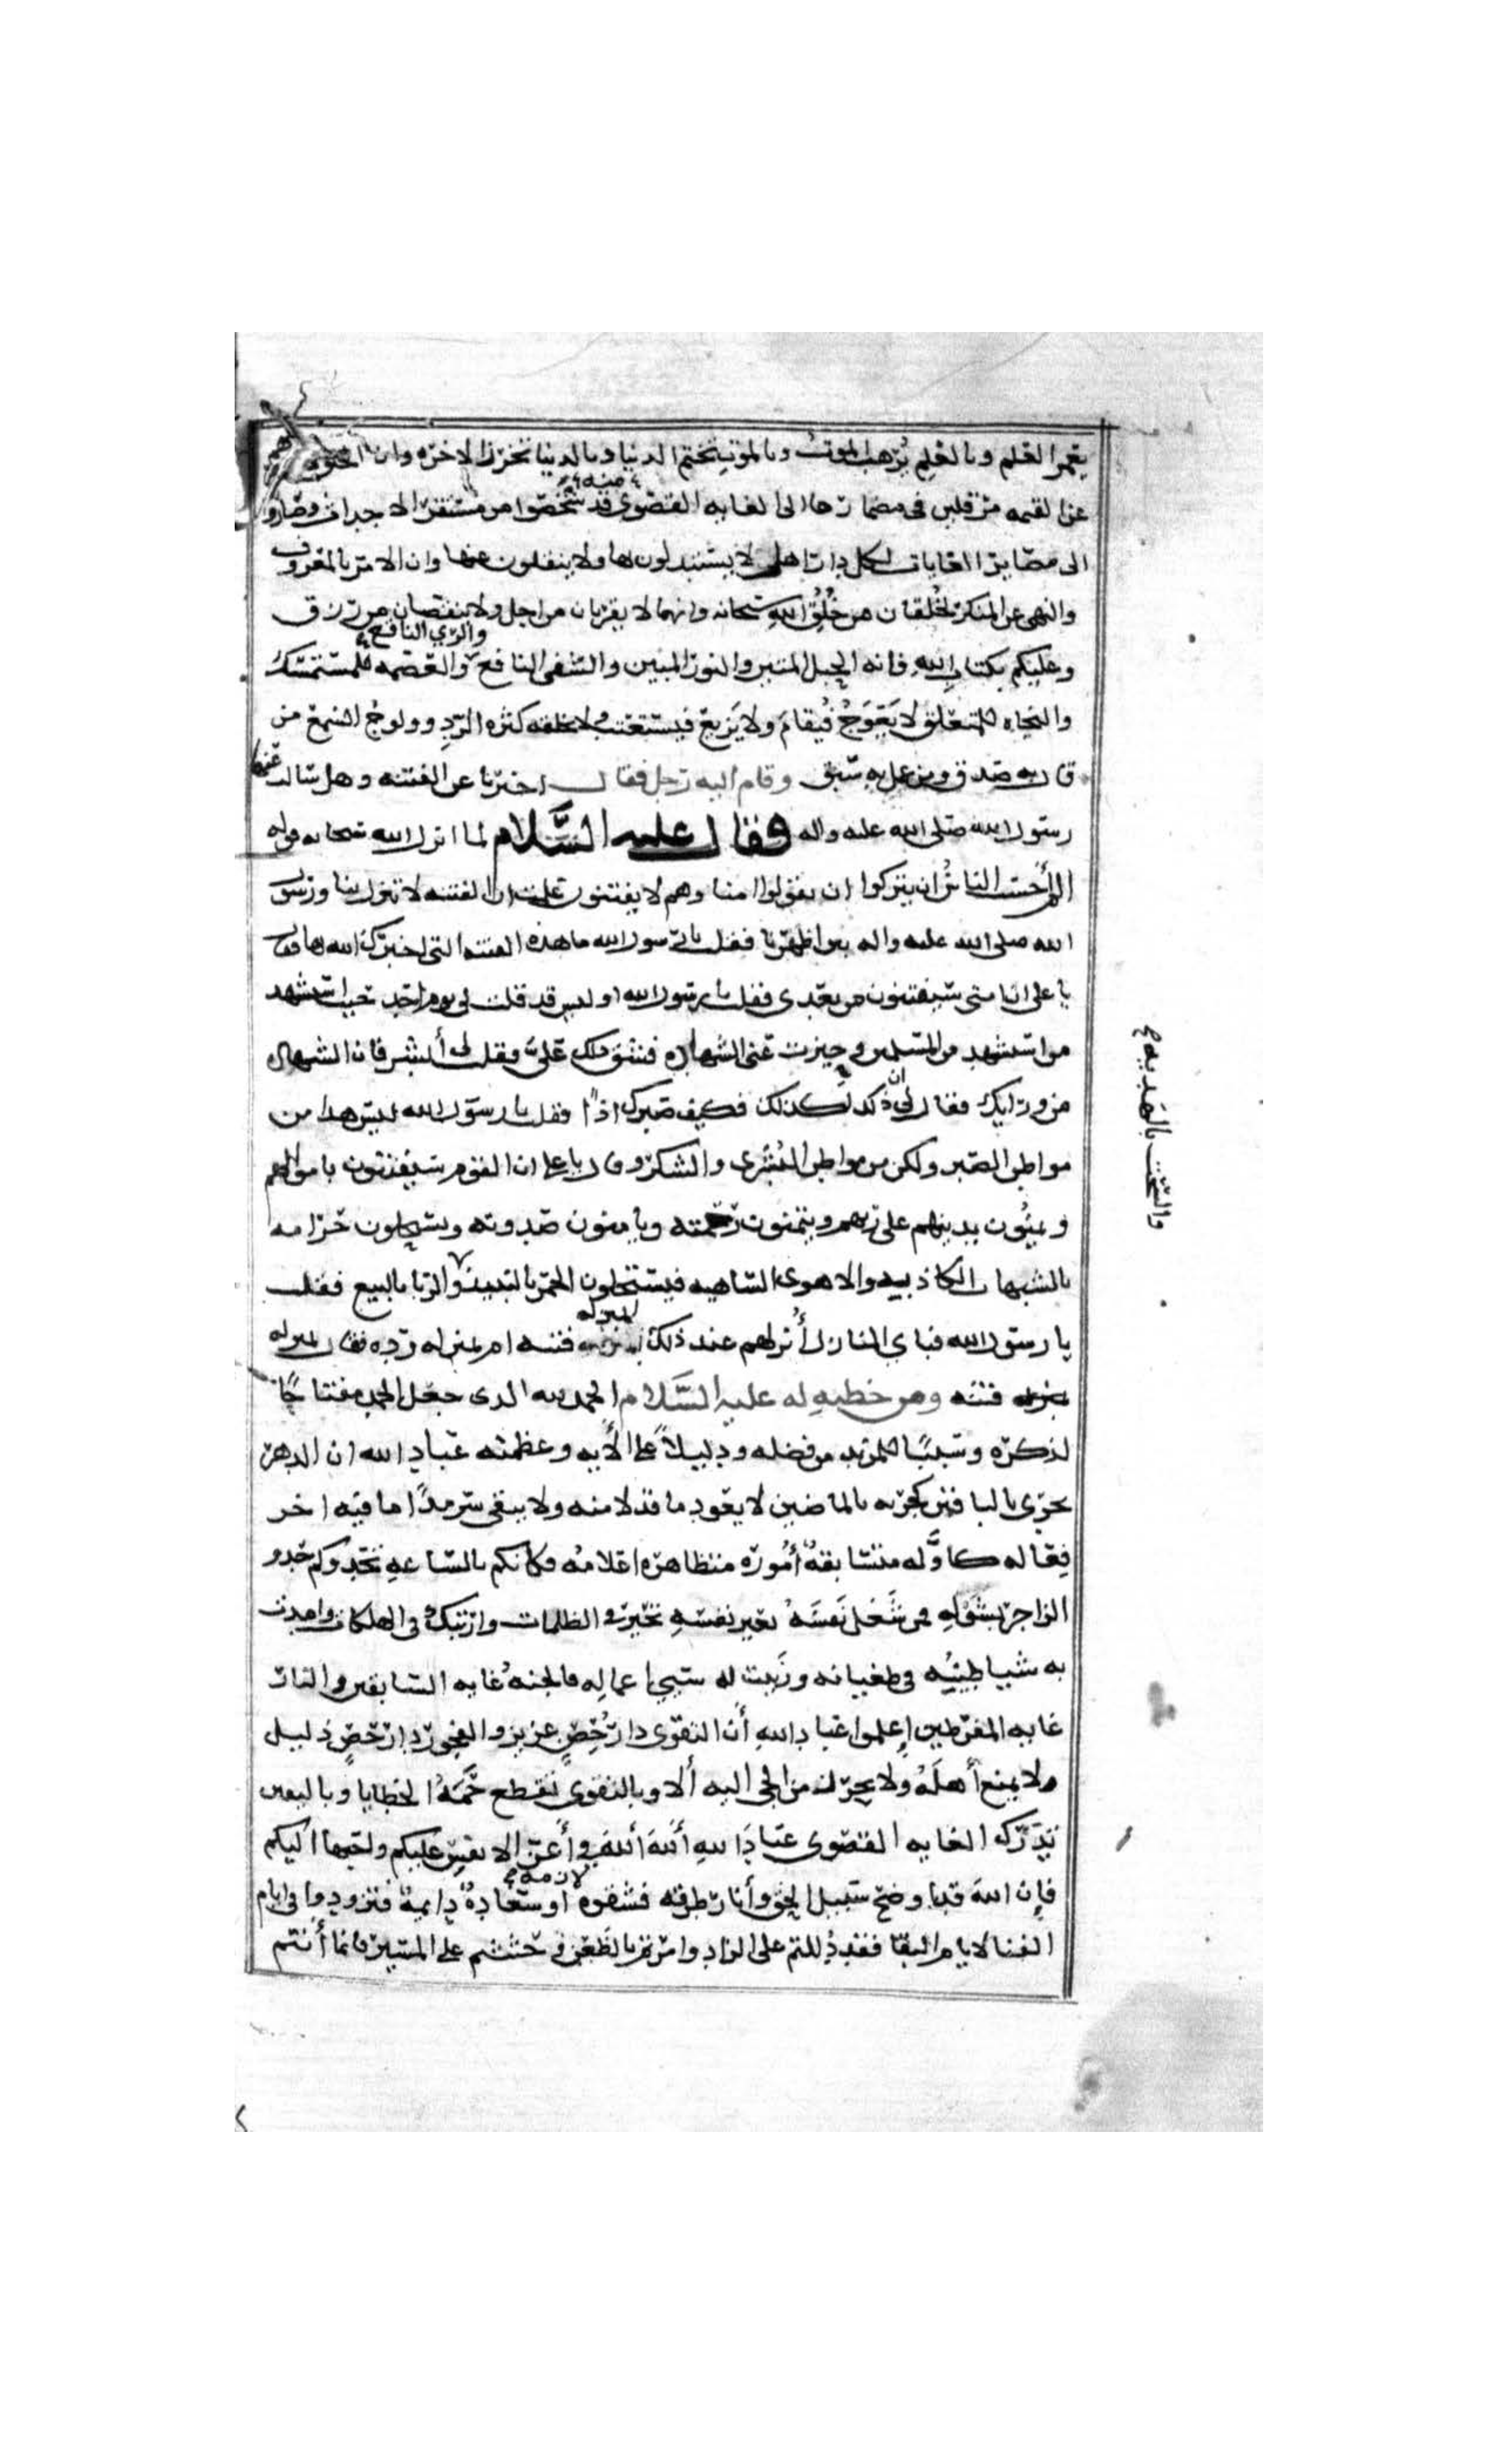 يعمر العلم وبالعلم يُرهب الموتُ وبالموت تختم الدنيا وبالدنيا تحرز الاخره وان الخلق
عن القيمه مرقلين فى مضمارها الى الغايه القصوى منه قد شخصوا من مستقر الاجداث وصاروا
الى مصاير الغايات لكل دار اهل لا يستبدلون بها ولا ينقلون عنها وان الامر بالمعروف
والنهى عن المنكر لخُلقان من خُلُق الله سبحانه وانهما لا يقربان من اجل ولا ينقصان من رزق
وعليكم بكتاب الله فانه الحبل المتين والنور المبين والشفى النافع والرّي الناقع والعصمه للمتمسّك
والنجاه للمتعلق لا يَعْوَجُّ فيُقامَ ولا يَزيغ فيستعتب ولا تخلقه كثره الردِّ وولوج السمع من
قال به صدق ومن عمل به سبق وقام اليه رجل فقال اخبرنا عن الفتنه وهل سالت عنها
رسول الله صلى الله عليه واله فقال عليه السَّلام لما انزل الله سبحانه قوله
الم أحسب الناسُ ان يتركوا ان يقولوا امنا وهم لا يفتنون علمت ان الفتنه لا تنزل بنا ورسول
الله صلى الله عليه واله بين اظهرنا فقلت يا رسول الله ما هذه الفتنه التى اخبرك الله بها فقال
يا على ان امتى سيفتنون من بعدى فقلت يا رسول الله او ليس قد قلت لى يوم احد حيث استشهد
من استشهد من المسلمين وحيزت عنى الشهاده فشق ذلك علىَّ فقلت لى أبشر فان الشهاده
من ورايك فقال لى ان ذلك لكذلك فكيف صبرك اذًا فقلت يا رسول الله ليس هذا من
مواطن الصبر ولكن من مواطن البُشرى والشكر وقال يا على ان القوم سيفتنون باموالهم
ويمنُّون بدينهم على ربهم ويتمنون رحمته ويامنون سطوته ويستحلون حرامه
بالشبهات الكاذبه والاهوى الساهيه فيستحلون الخمر بالنبيذ والربا بالبيع فقلت
والسُّحت بالهديه صح
يا رسول الله فباى المنازل أُنزلهم عند ذلك ابمنزله فتنه ام بمنزله ردّه فقال بمنزله
فتنه ومن خطبهٍ له عليه السَّلام الحمد لله الذى جعل الحمد مفتاحًا
لذكره وسببًا للمزيد من فضله ودليلاً على آلائه وعظمته عباد الله ان الدهر
يجرى بالباقين كجريه بالماضين لا يعود ما قد ولا منه ولا يبقى سرمدًا ما فيه اخر
فِعَاله كاوَّله متسابقهٌ أُمُوره متظاهره اعلامُه فكانكم بالسّاعهِ تحدوكم حَدو
الزاجر بشَوْلِهِ فمن شَغل نَفسَهُ بغير نفسِهِ تحيّر فى الظلمات وارتبك فى الهلكات وامدت
به شياطينُه فى طغيانه وزَينت له سيئَ اعمالِه فالجنهُ غايه السّابقين والنار
غايه المفرّطين اِعلموا عباد اللهِ أن التقوى دار حِصْنٍ عزيز والفجور دار حصنٍ ذليل
لا يمنع أهلَهُ ولا يحرز من لجى اليه ألا وبالتقوى تُقطع حُمَهُ الخطايا وباليقين
تُدرَك الغايه القصوى عبادَ اللهِ أللهَ أللهَ فى أَعزّ الانفسِ عليكم واحبها اليكم
فاِن اللهَ قد اوضح سبيل الحق وأنار طرقه فشقوه لازمه او سعادهٌ دايمة فتزودوا فى ايام
الفنا لايام البقا فقد دُللتم على الزاد وامرتم بالظَّعن وحُثثتم على المسير فانما أنتم